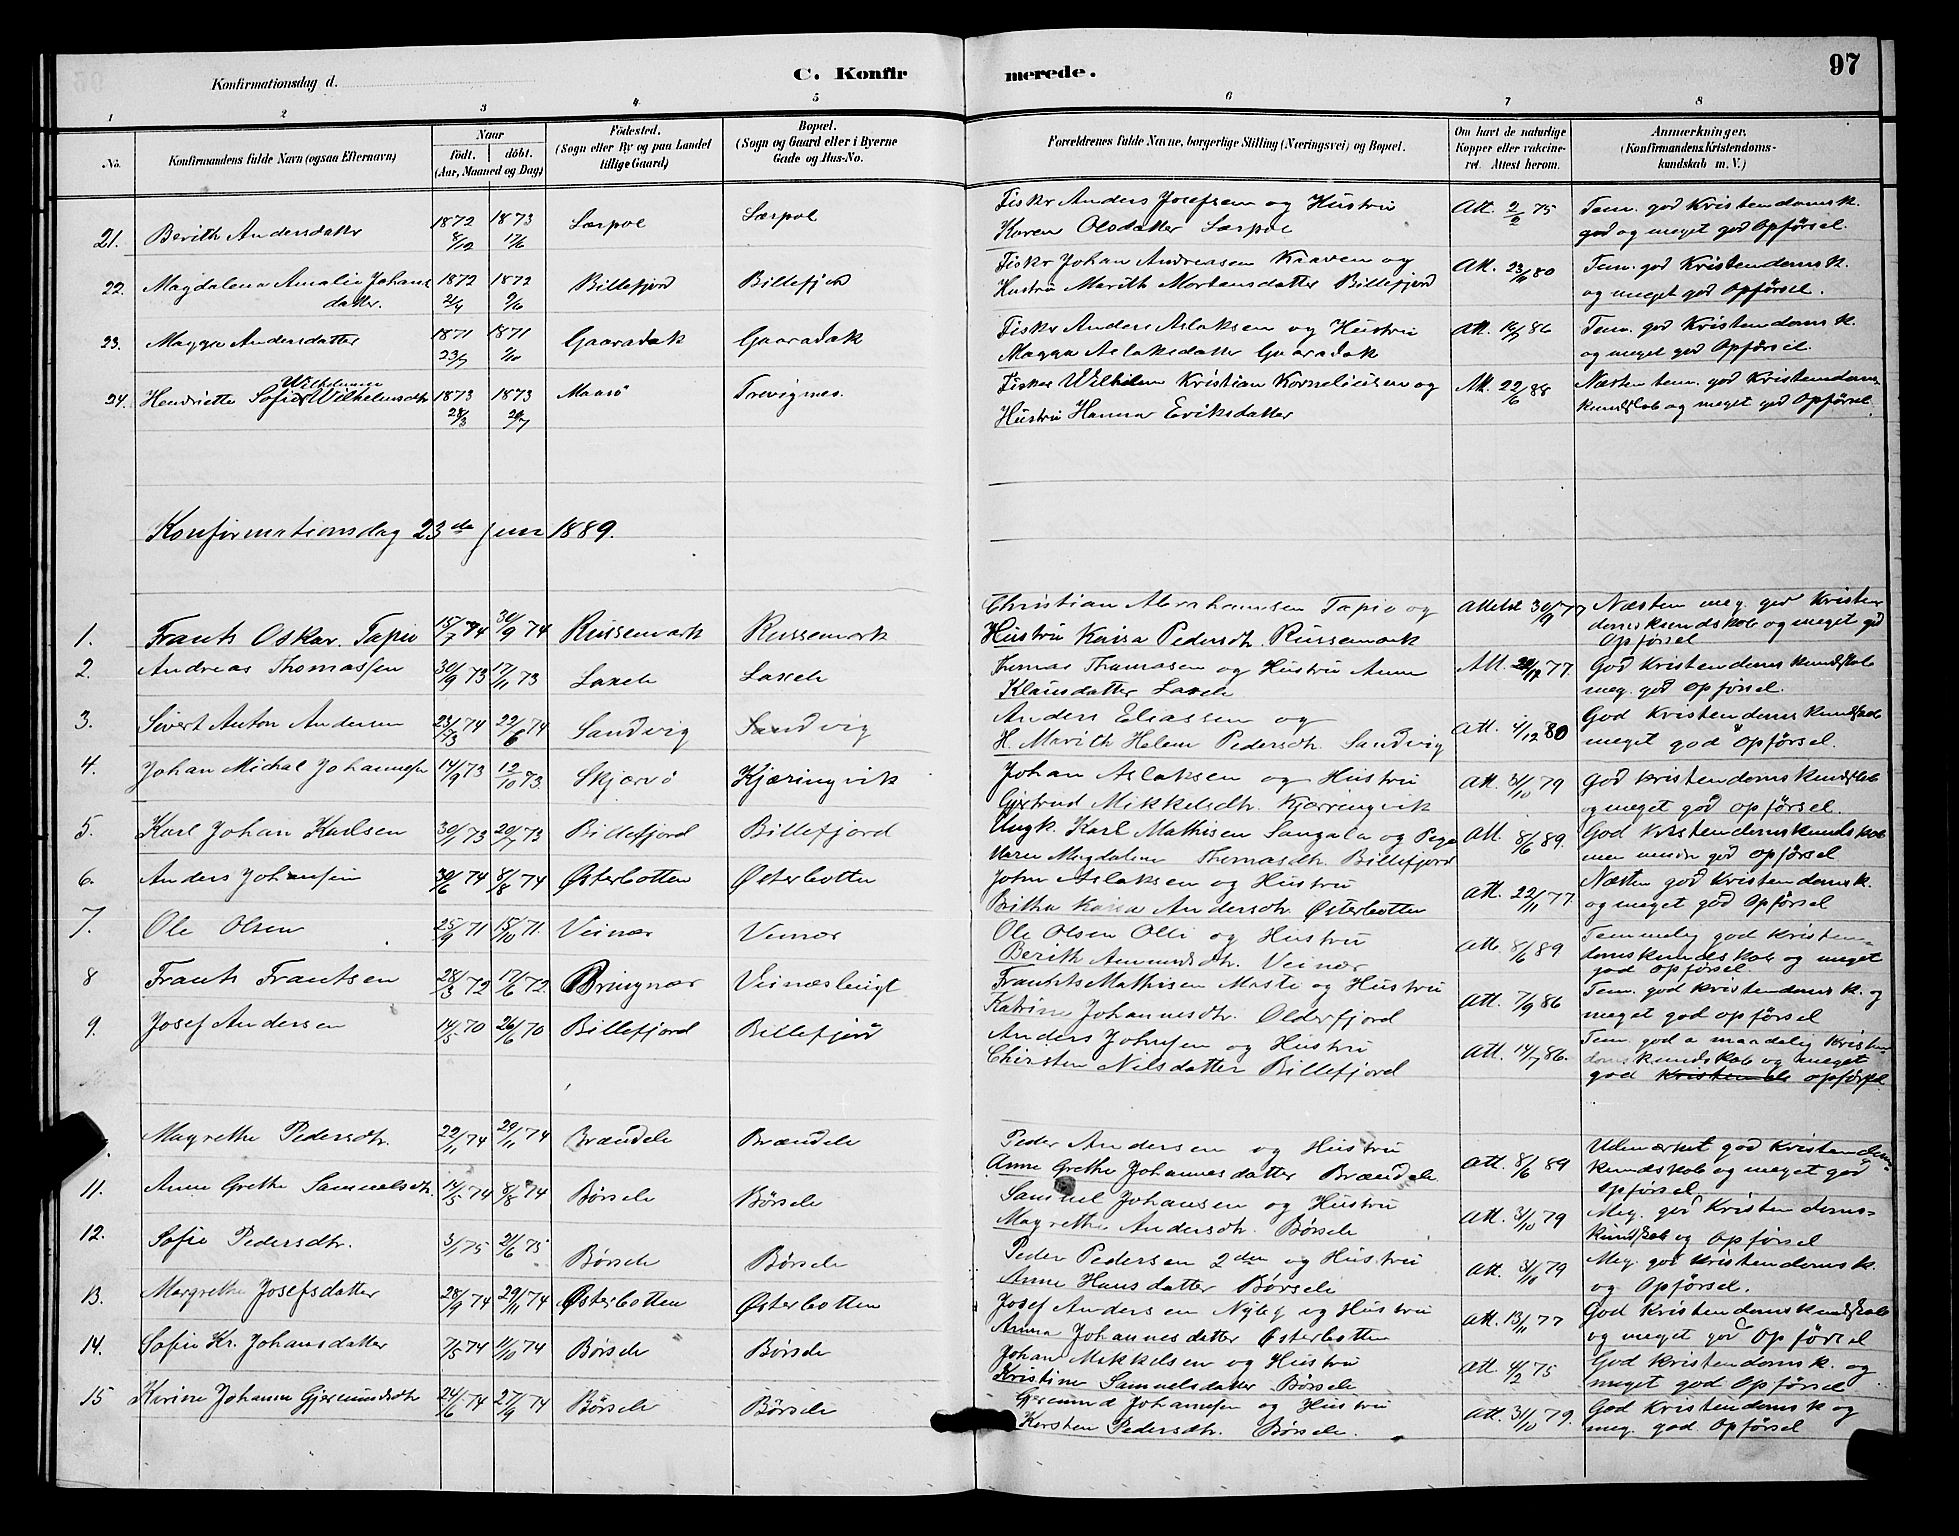 97
Konfirmationsdag d.
C. Konfirmerede.
1 2 3 4 5 6 7 8
No.
Konfirmandens fulde Navn (ogsaa Efternavn)
Naar
født. døbt.
(Aar, Maaned og Dag)
Fødested.
(Sogn eller By og paa Landet
tillige Gaard)
Bopæl.
(Sogn og Gaard eller i Byerne
Gade og Hus-No.
Forældrenes fulde Navne, borgerlige Stilling (Næringsvei) og Bopæl.
Om havt de naturlige
Kopper eller vakcine-
ret. Attest herom.
Anmærkninger.
(Konfirmandens Kristendoms-
kundskab m. V.)
21. Berith Andersdatter 1872 8/12 1873 17/6 Særpol Særpol
Fisker Anders Josefsen og Hustru
Karen Olsdatter Særpol
Att. 2/2 75
Tem. god Kristendomsk.
god og meget god Opførsel.
22. Magdalena Amalie Johans
datter 1872 1872 Billefjord Billefjord
Fisker Johan Andreasen Kraven og
Hustru Marith Mortensdatter Billefjord
Att. 23/11 80
Tem. god Kristendomsk.
og meget god Opførsel.
23. Magga Andersdatter 1871 23/7 1871 Gaaradak Gaaradak
Fisker Anders Aslaksen og Hustru
Magga Aslaksdatter Gaaradak
Att. 86
Tem. god Kristendomsk.
og meget god Opførsel.
24. Henriette Sofie Wilhelmsdtr 1873 28/3 1873 Maasø Trevignes.
Fisker Wilhelm Kristian Korneliusen og
Hustru Hanna Eriksdatter
Att. 22/6 88
Næsten tem. god Kristendoms-
kundskab og meget god Opførsel.
Konfirmationsdag 23de juni 1889.
1. Frants Oskar Tapio 15/7 74 30/9 74 Russemark Russemark
Christian Abrahamsen Tapio og
Hustru Kaisa Pedersdtr. Russemark
Attest 30/9 77
Næsten meg. god Kristen
domskundskab og meget god
Opførsel
2. Andreas Thomassen 30/9 73 17/11 73 Laxelv Laxelv
Thomas Thomasen og Hustru Anne
Klausdatter Laxelv
Att. 77.
God Kristendoms kundskab
meg. god opførsel.
3. Sivert Anton Andersen 22/6 74 Sandvig Sandvig
Anders Eliassen og
H. Marith Helene Pedersdtr. Sandvig
Att. 4/12 80
God Kristendomskundskab
meget god Opførsel.
4. Johan Michal Johannesen 14/9 73 12/10 73. Skjærvø Kjæringvik
Johan Aslaksen og Hustru
Gjertrud Mikkelsdtr. Kjærringvik
Att. 31/10 79
God kristendomskundskab
og meget god opførsel.
5. Karl Johan Karlsen 30/1 73 20/7 73 Billefjord Billefjord
Ungk. Karl Mathisen Sangala og Pige
Maren Magdalene Thomasdtr. Billefjord
Att. 8/6 89.
God kristendomskundskab
men mindre god opførsel
6. Anders Johansen 30/6 74 8/8 74 Østerbotten Østerbotten
John Aslaksen og Hustru
Britha Kaisa Andersdtr. Østerbotten
Att. 22/11 77.
Næsten god Kristendomsk.
og meget god Opførsel
7. Ole Olsen 25/9 71 15/10 71. Veinær Veinær
Ole Olsen Olli og Hustru
Berith Ammundsdtr. Veinær
Att. 8/6 89
Temmelig god kristen-
domskundskab og meget
god opførsel.
8 Frants Frantsen 28/3 72 17/6 72. Bringnær Veinæsbugt
Frants Mathisen Maste og Hustru
Katrine Johannesdtr. Olderfjord
Att. 7/9 86
Tem. god kristendomsk. og
meget god opførsel
9. Josef Andersen 14/5 70 26/6 70 Billefjord Billefjord
Anders Johnsen og Hustru
Chirsten Nilsdatter Billefjord
Att. 14/7 86.
Tem. god a maadelig kristen-
domskundskab og meget
god Kristende opførsel
Magrethe Pedersdtr. 22/11 74 29/11 74 Brændelv Brændelv
Peder Andersen og Hustru
Anne Grethe Johannesdatter Brændelv
Att. 8/6 89
Udmærket god kristendoms-
kundskab og meget god
opførsel
11. Anne Grethe Samuelsdtr. 14/5 74 8/8 74 Børselv Børselv
Samuel Johansen og Hustru
Magrethe Andersdtr. Børselv
Att. 31/10 79
Meg. god Kristendoms-
kundskab og opførsel
12. Sofie Pedersdtr. 3/1 75 21/6 75 Børselv Børselv
Peder Pedersen 2den og Hustru
Anne Hansdatter Børselv
Att. 31/10 79
Meg. god kristendomsk.
og Opførsel.
13. Margrethe Josefsdatter 28/9 74 29/11 74 Østerbotten Østerbotten
Josef Andersen Nyby og Hustru
Anna Johannesdatter Østerbotten
Att. 13/11 77
God Kristendomskundskab
og meget god Opførsel
14. Sofie Kr. Johansdatter 7/5 74 11/10 74 Børselv Børselv
Johan Mikkelsen og Hustru
Kristine Samuelsdatter Børselv
Att. 4/2 75
God Kristendomsk. og
meget god Opførsel
15 Kirine Johanne Gjermundsdtr 24/6 74 27/9 74 Børselv Børselv
Gjermund Johansen og Hustru
Kersten Pedersdtr. Børselv.
Att. 31/10 79.
God Kristendomsk og
meg. god. Opførsel